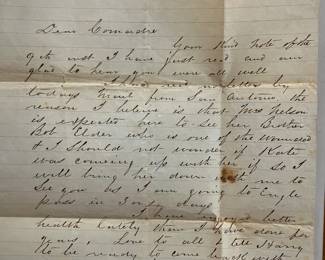 Dear Comadre
Your kind note of the
9th inst I have just read and am
glad to hear you were all well
I had no letter by
todays Mail from San Antonio, the
reason I beleive is that Mrs Nelson
is expected here to see her Brother
Bob Elder who is one of the wounded
& I should not wonder if Kate
was comeing up with her if so I
will bring her down with me to
see you as I am going to Eagle
pass in 3 or 4 days
I have enjoyed better
health lately than I have done for
years, Love to all & tell Harry
to be ready to come back with